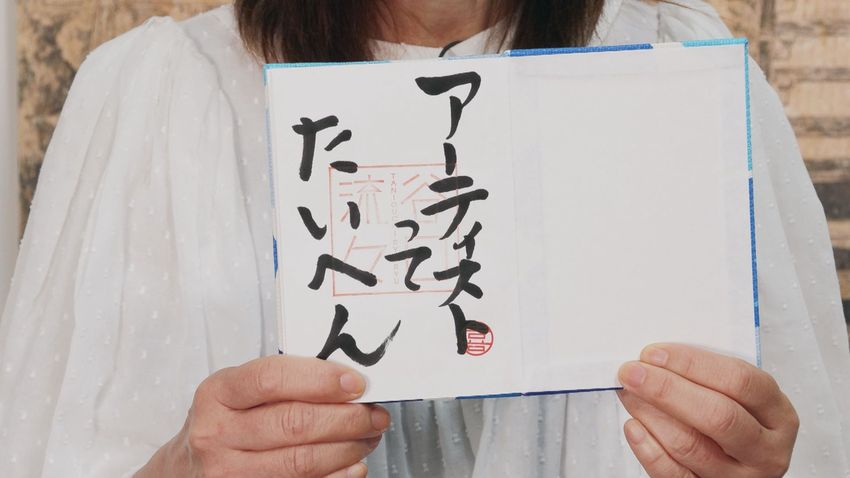 アーティスト
って
たいへん
谷口
流々